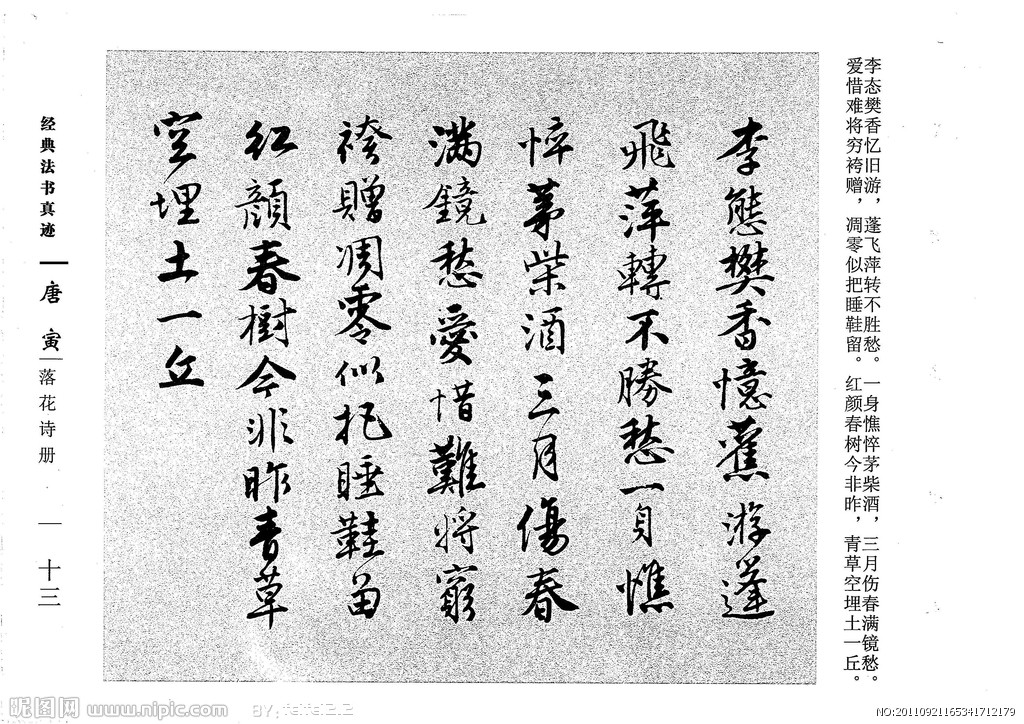 李态樊香忆旧游，蓬飞萍转不胜愁。一身憔悴茅柴酒，三月伤春满镜愁。
爱惜难将穷袴赠，凋零似把睡鞋留。红颜春树今非昨，青草空埋土一丘。
李態樊香憶舊游蓬
飛萍轉不勝愁一身憔
悴茅柴酒三月傷春
滿鏡愁愛惜難將窮
袴贈凋零似把睡鞋留
紅顔春樹今非昨青草
空埋土一丘
经典法书真迹
唐寅
落花诗册
十三
昵图网 www.nipic.com
NO:20110921165341712179